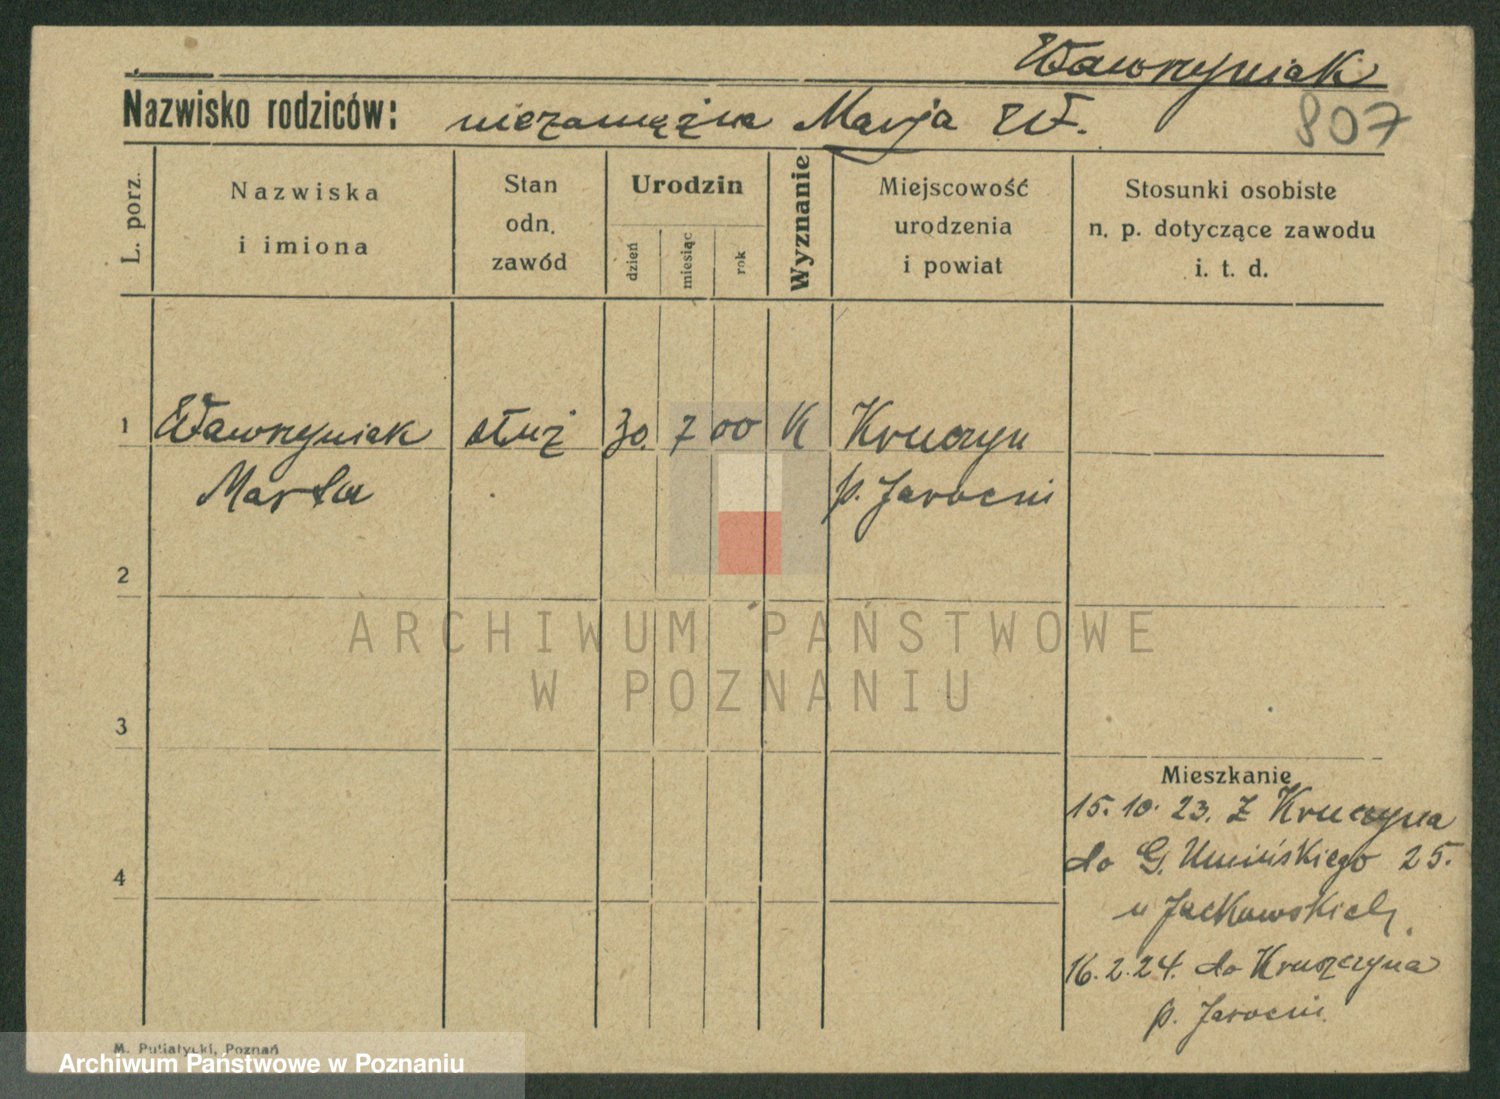 Wawrzyniak
Nazwisko rodziców: niezamężna Marja W.
807
L. porz.
Nazwiska
i imiona
Stan
odn.
zawód
Urodzin
dzień
miesiąc
rok
Wyznanie
Miejscowość
urodzenia
i powiat
Stosunki osobiste
n. p. dotyczące zawodu
i. t. d.
1 Wawrzyniak służ 30. 7 00 K Kruczyn
Marta p. Jarocin
2
ARCHIWUM PAŃSTWOWE
W POZNANIU
3
Mieszkanie
15. 10. 23. z Kruczyna
4
do G. Umińskiego 25.
u Jackowskich,
16. 2. 24. do Kruszczyna
p. Jarocin.
M. Putiatycki, Poznań
Archiwum Państwowe w Poznaniu